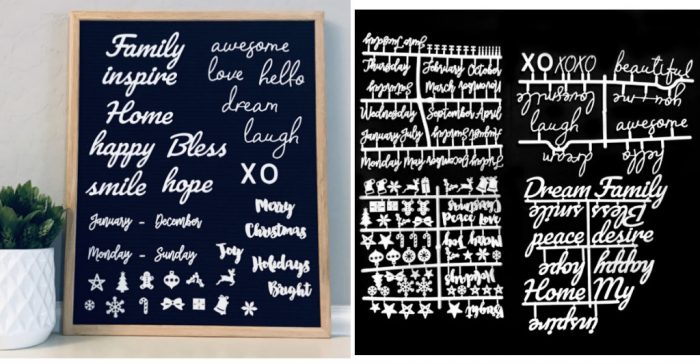 Family
inspire
Home
happy Bless
smile hope
awesome
love hello
dream
laugh
XO
January - December
Monday - Sunday
Merry
Christmas
Joy
Holidays
Bright
June Tuesday
Thursday February October
March November
Wednesday September April
January July August
Monday May
Christmas
Peace Love
Joy
Holidays
Bright
XO XOXO beautiful
laugh awesome
dream hello
Dream Family
smile Bless
peace desire
hope happy
Home My
inspire